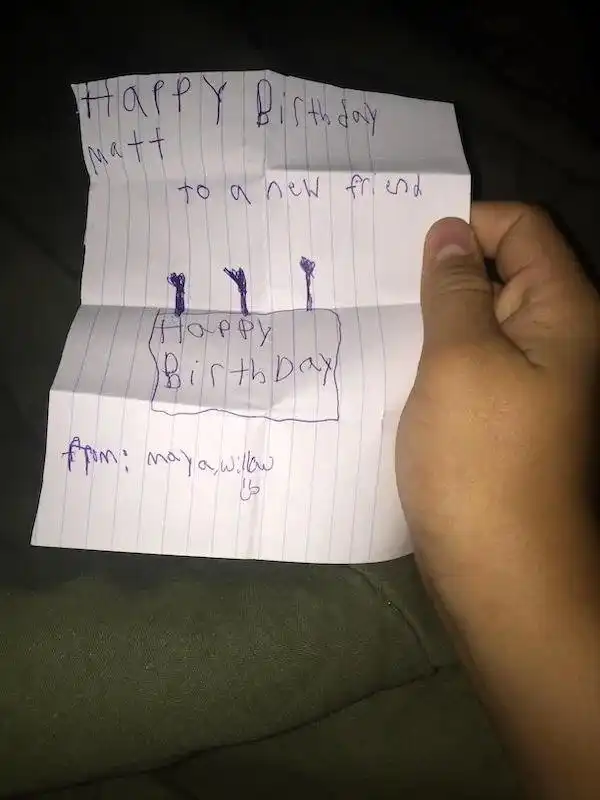 Happy Birthday
matt
to a new friend
Happy
BirthDay
from: maya, willow